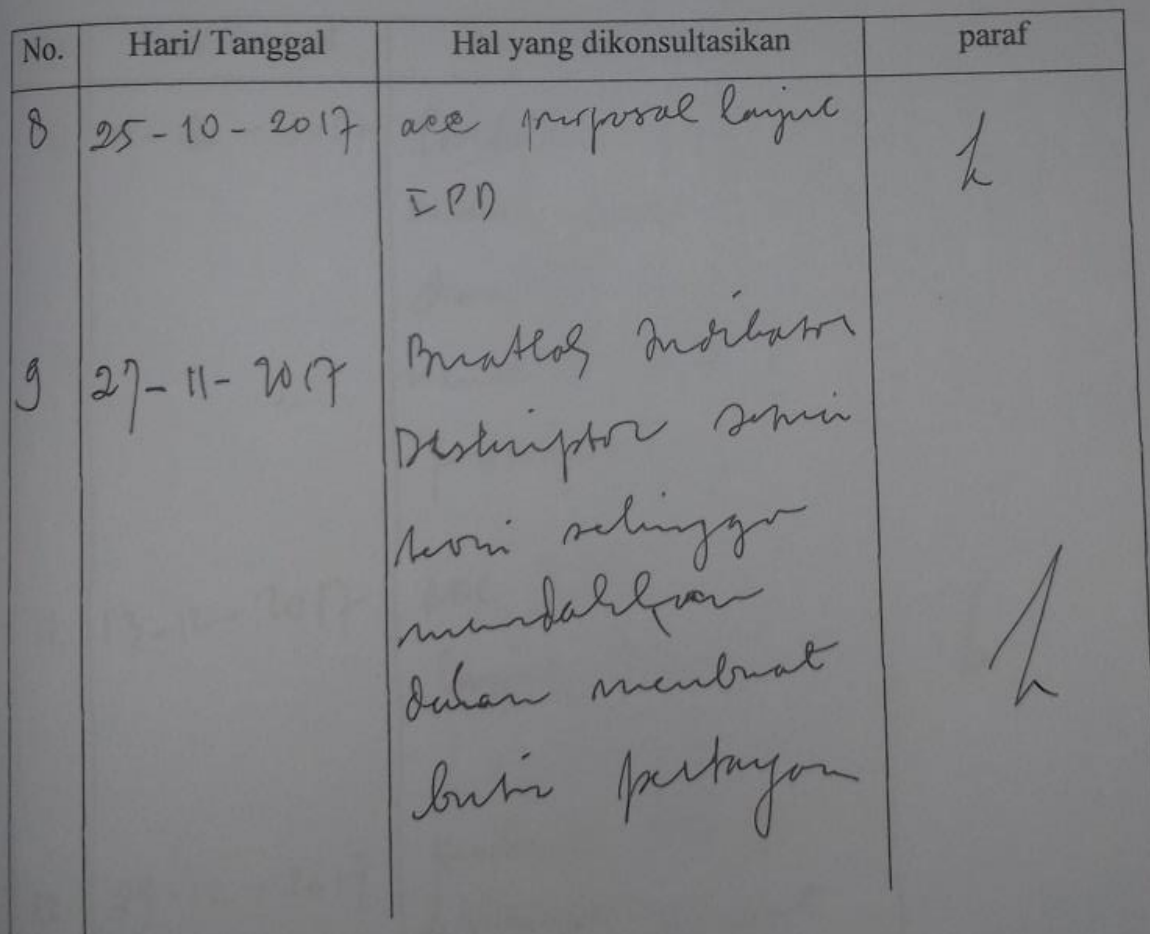 No. Hari/ Tanggal Hal yang dikonsultasikan paraf
8 25-10-2017 acc proposal lanjut
IPD
9 27-11-2017 Buatlah Indikator
Deskriptor sesuai
teori sehingga
memudahkan
dalam membuat
butir pertayaan